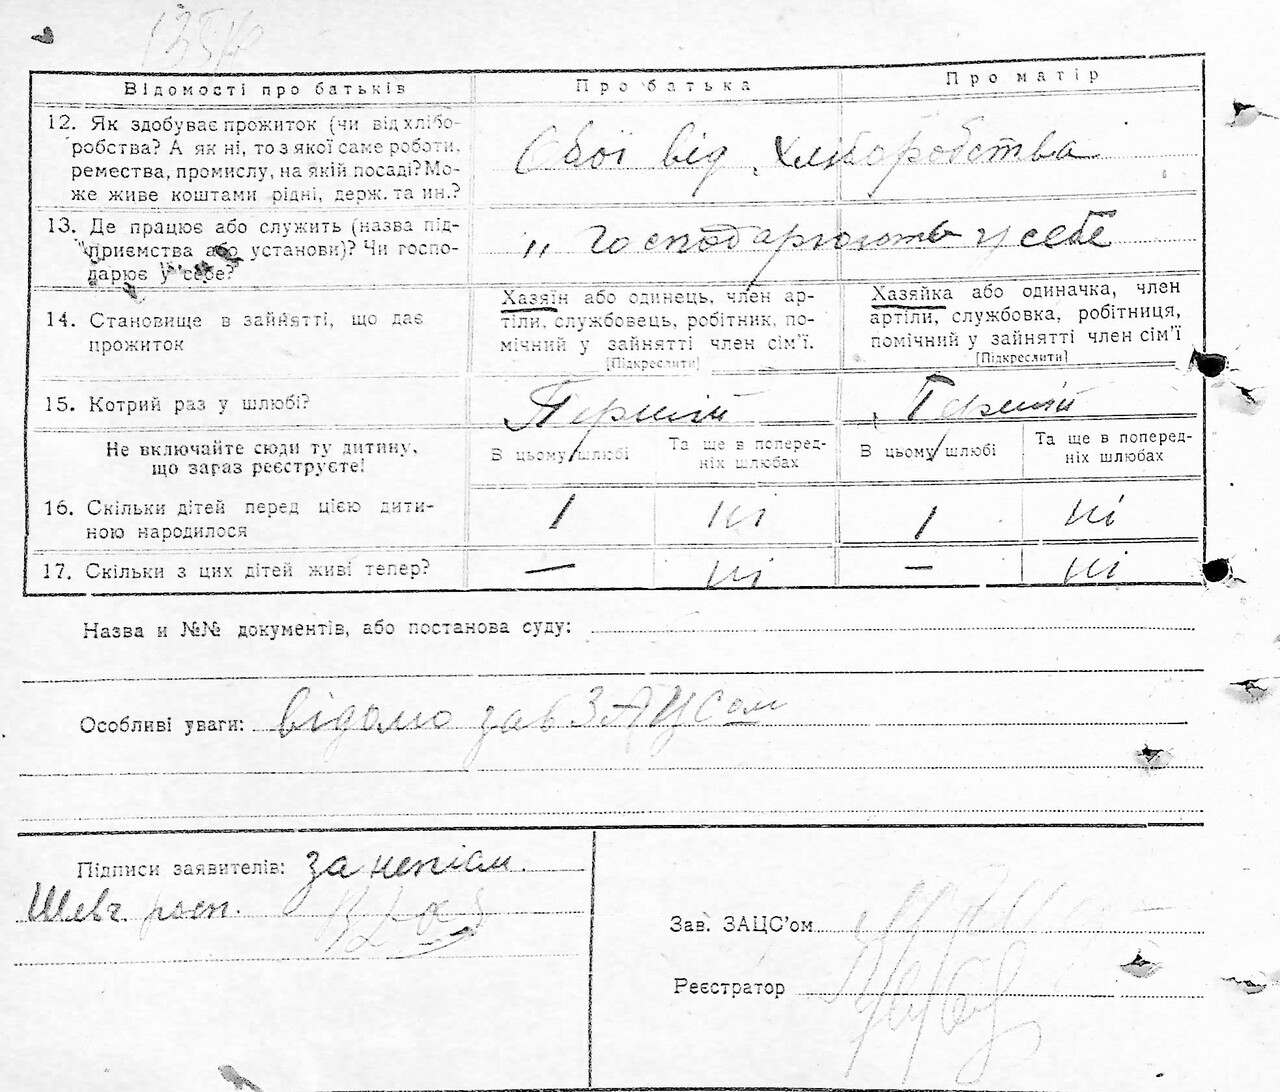 Відомості про батьків
Про батька
Про матір
12. Як здобуває прожиток (чи від хлібо-
робства? А як ні, то з якої саме роботи,
ремества, промислу, на якій посаді? Мо-
же живе коштами рідні, держ. та ин.?
Обої від хліборобства
13. Де працює або служить (назва під-
приємства або установи)? Чи госпо-
дарює у себе?
„ господарюють у себе
14. Становище в зайнятті, що дає
прожиток
Хазяїн або одинець, член ар-
тіли, службовець, робітник, по-
мічний у зайнятті член сім'ї.
[Підкреслити]
Хазяйка або одиначка, член
артіли, службовка, робітниця,
помічний у зайнятті член сім'ї
[Підкреслити]
15. Котрий раз у шлюбі?
Перший
Перший
Не включайте сюди ту дитину,
що зараз реєструєте!
В цьому шлюбі
Та ще в поперед-
ніх шлюбах
В цьому шлюбі
Та ще в поперед-
ніх шлюбах
16. Скільки дітей перед цією дити-
ною народилося
1 ні 1 ні
17. Скільки з цих дітей живі тепер?
— ні — ні
Назва и №№ документів, або постанова суду:
Особливі уваги: відомо зав ЗАЦСом
Підписи заявителів: за непісм.
Шевч расп.
Зав. ЗАЦС'ом
Реєстратор